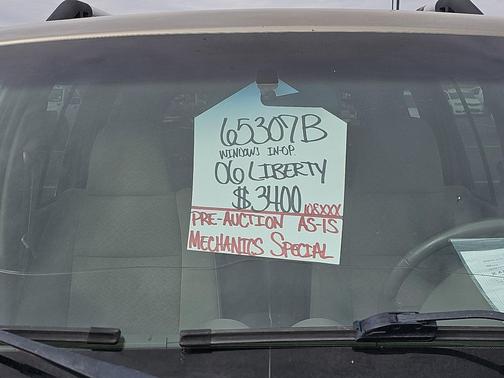 65307B
WINDOWS IN-OP
06 LIBERTY
$3400 108XXX
PRE-AUCTION AS-IS
MECHANICS SPECIAL